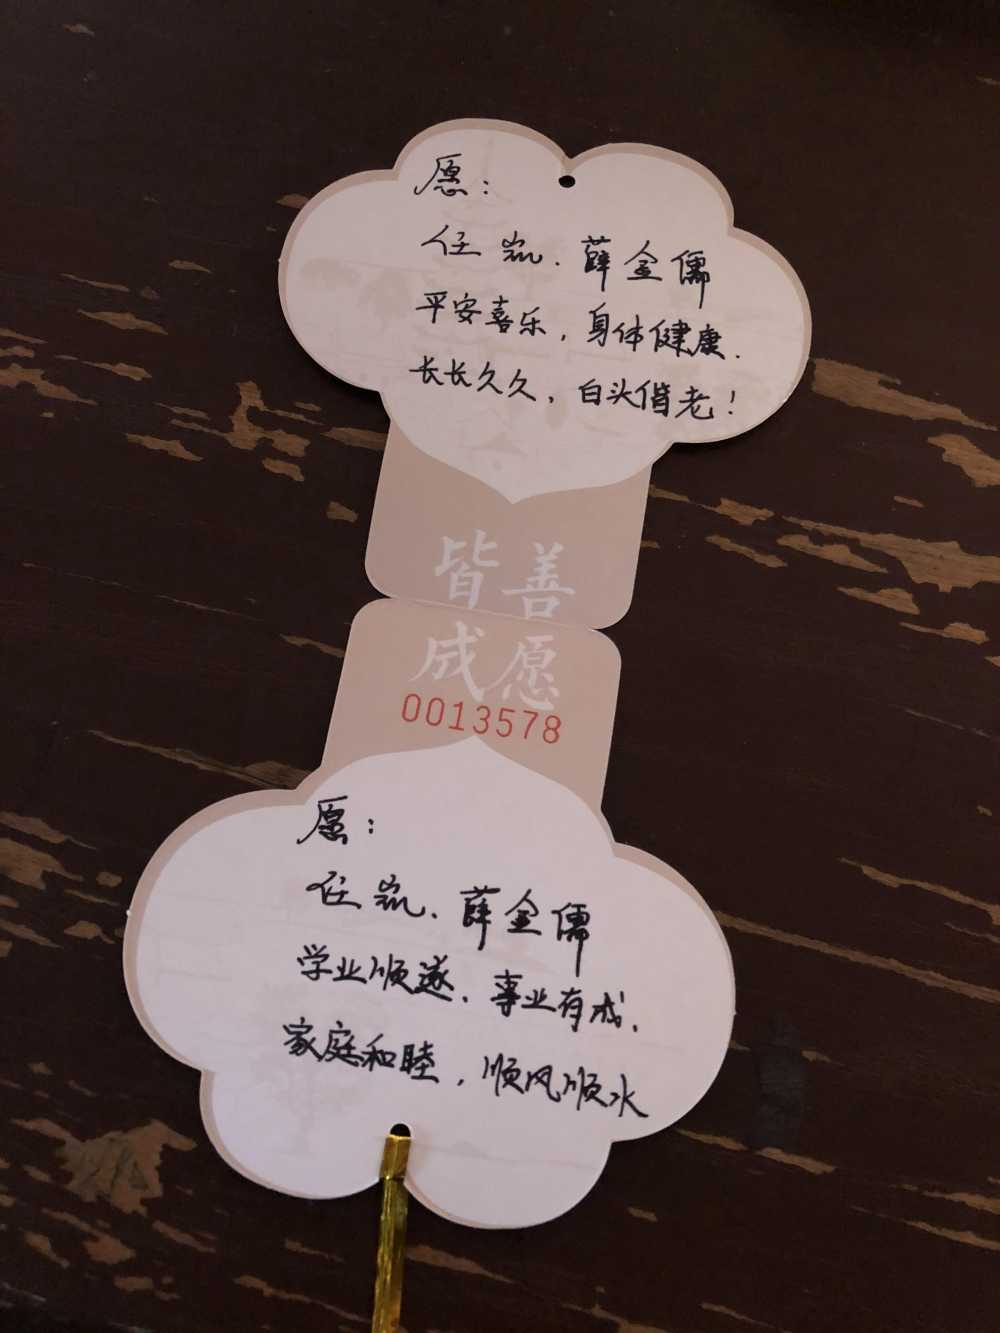 愿：
任岚、薛金儒
平安喜乐，身体健康、
长长久久，白头偕老！
善愿
皆成
0013578
愿：
任岚、薛金儒
学业顺遂、事业有成、
家庭和睦，顺风顺水